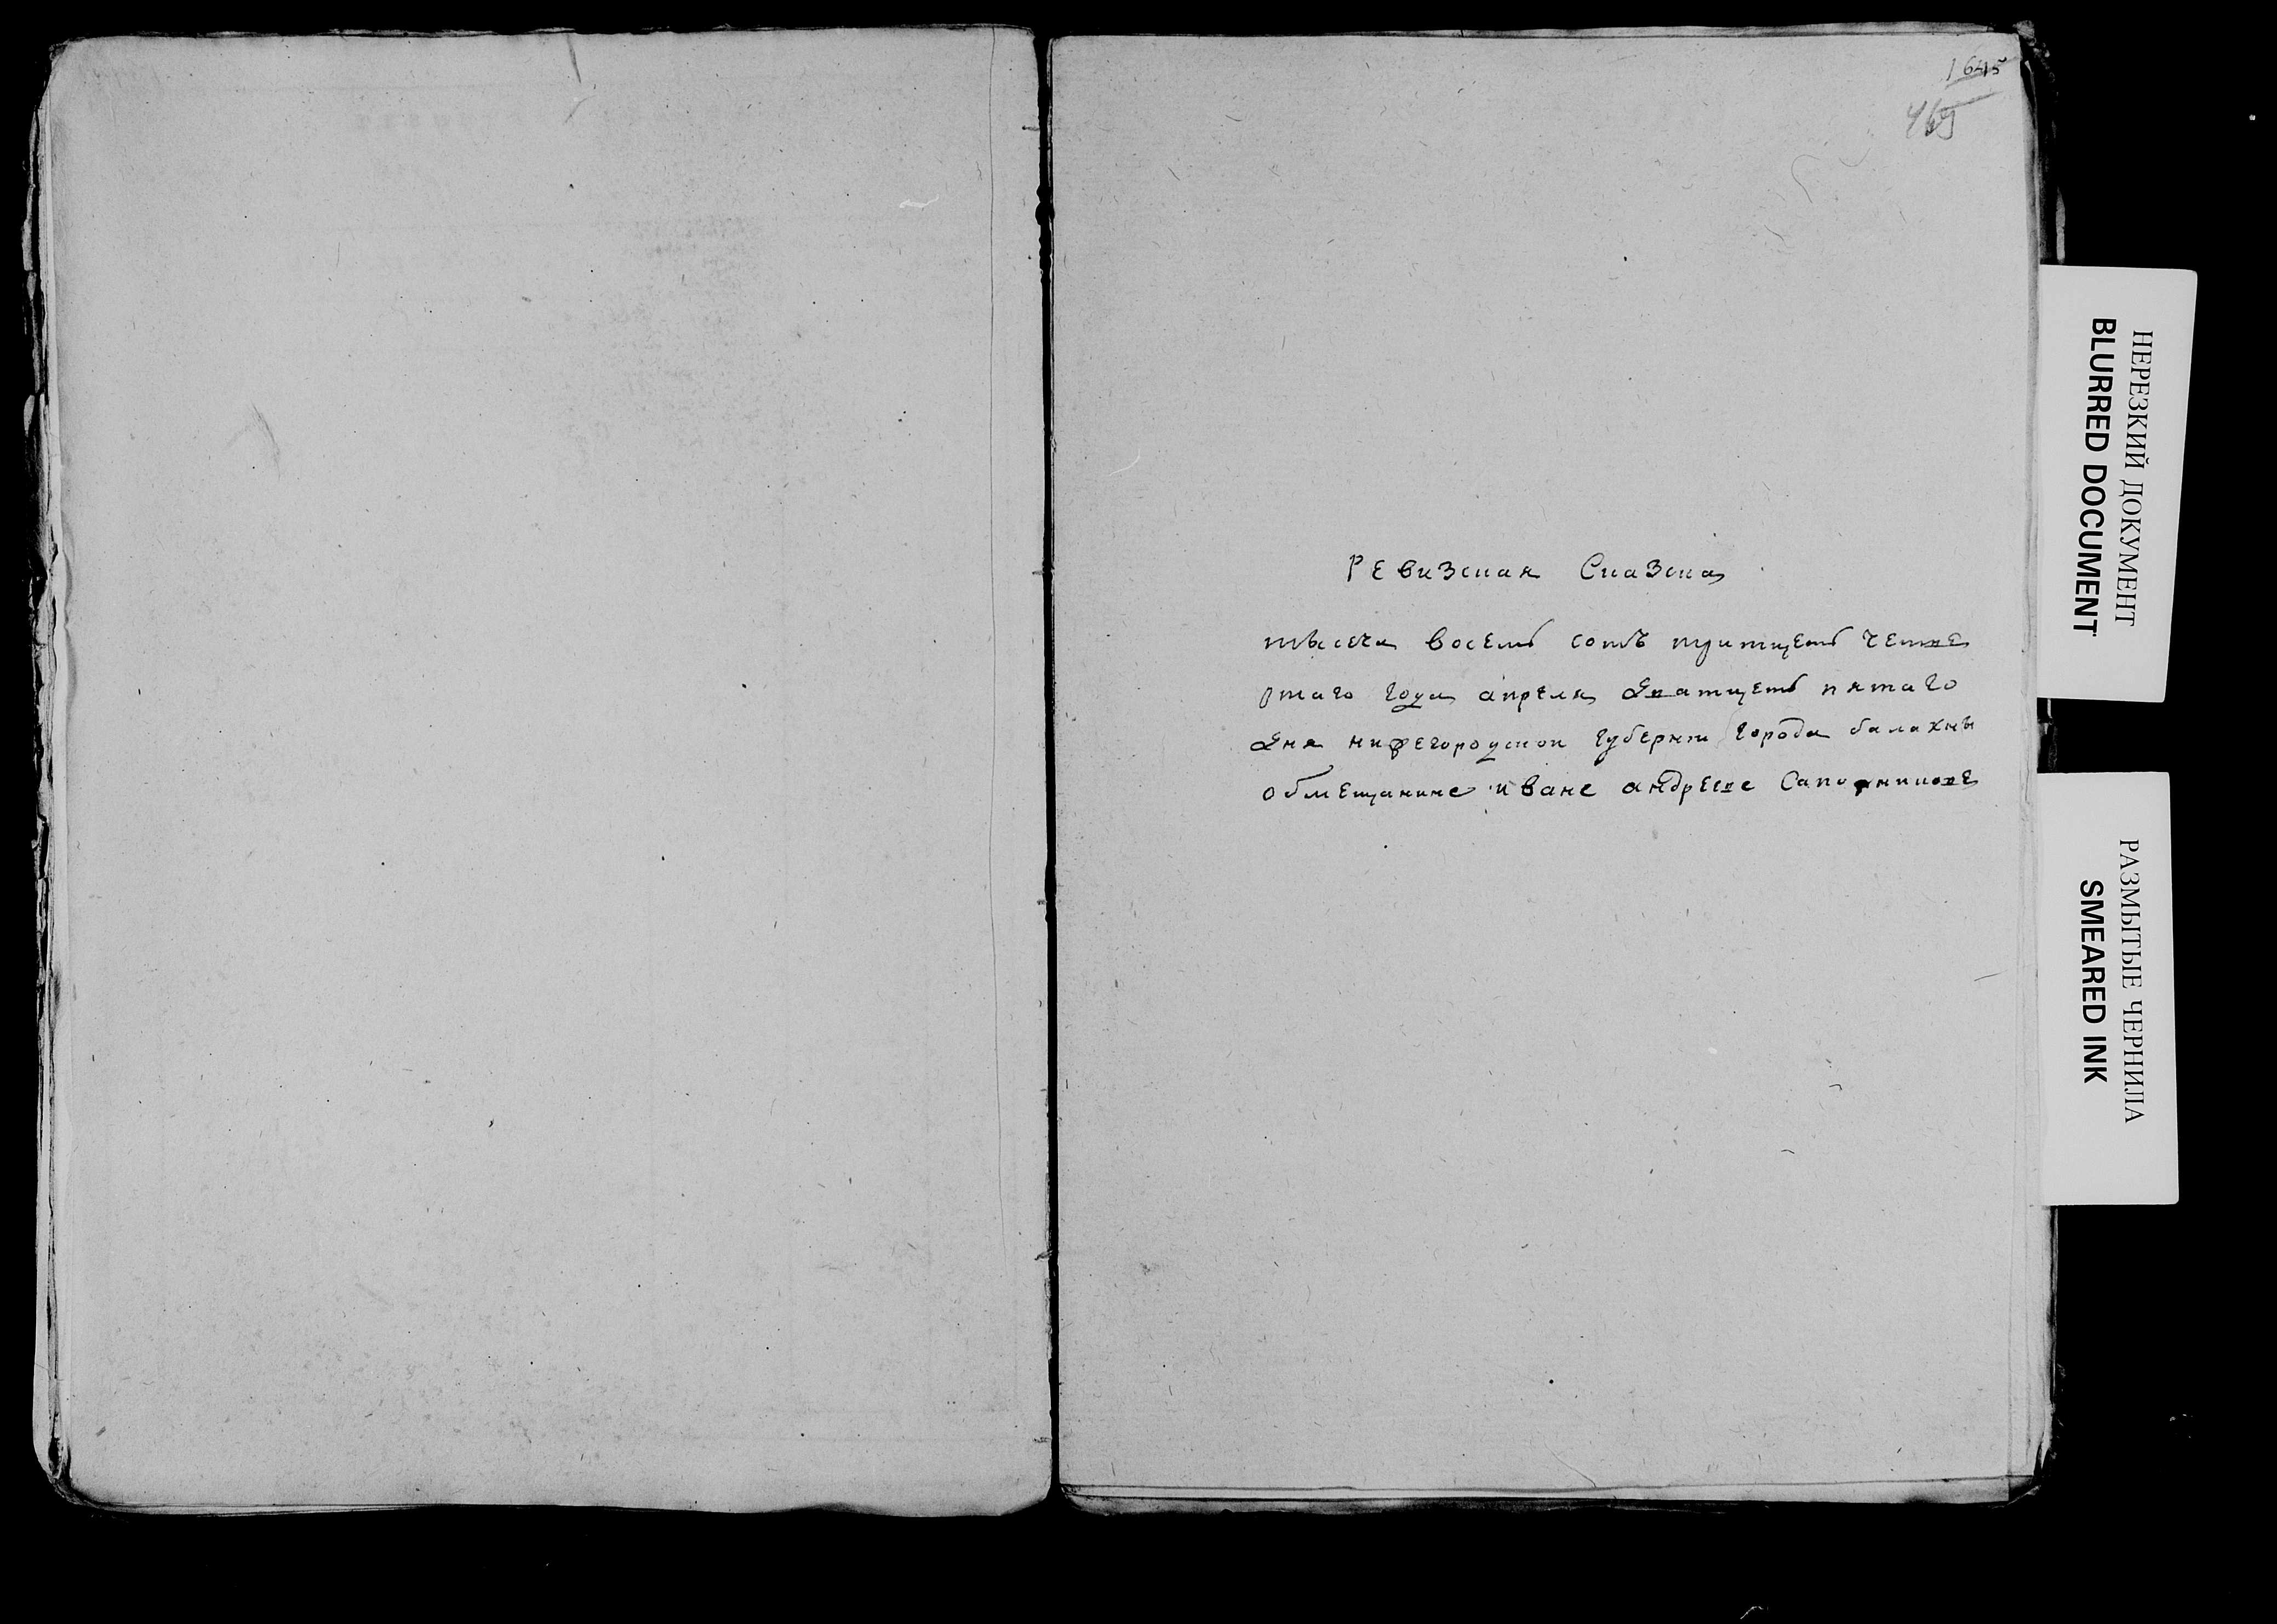 1645
469
Ревизская Сказка
тысеча восемь сотъ тритцеть четве
ртаго года апреля дватцеть пятаго
дня нижегороцкои губернии города балахны
обмещанине иване андреве Сапожникове
НЕРЕЗКИЙ ДОКУМЕНТ
BLURRED DOCUMENT
РАЗМЫТЫЕ ЧЕРНИЛА
SMEARED INK